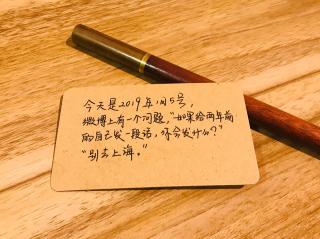 今天是2019年1月5号,
微博上有一个问题,“如果给两年前
的自己发一段话,你会发什么?”
“别去上海。”